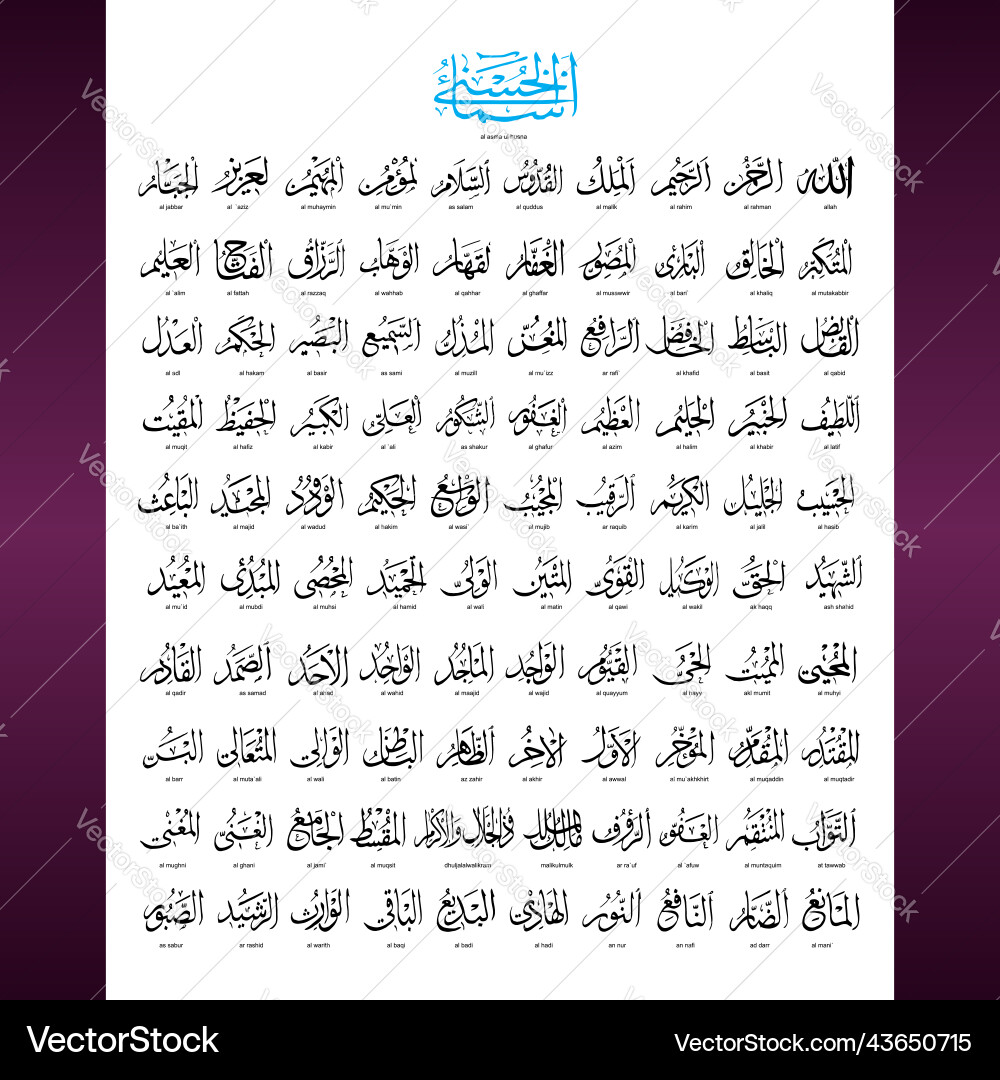 أسماء الحسنى
al asma ul husna
الله الرحمن الرحيم الملك القدوس السلام لمؤمن المهيمن لعزيز الجبار
allah al rahman al rahim al malik al quddus as salam al mu`min al muhaymin al `aziz al jabbar
المتكبر الخالق البارئ المصور الغفار لقهار الوهاب الرزاق الفتاح العليم
al mutakabbir al khaliq al bari` al musswwir al ghaffar al qahhar al wahhab al razzaq al fattah al `alim
القابض الباسط الخافض الرافع المعز المذل السميع البصير الحكم العدل
al qabid al basit al khafid ar rafi` al mu`izz al muzill as sami al basir al hakam al sdl
اللطيف الخبير الحليم العظيم الغفور الشكور العلي الكبير الحفيظ المقيت
al latif al khabir al halim al azim al ghafur as shakur al `ali al kabir al hafiz al muqit
الحسيب الجليل الكريم الرقيب المجيب الواسع الحكيم الودود المجيد الباعث
al hasib al jalil al karim ar raquib al mujib al wasi` al hakim al wadud al majid al ba`ith
الشهيد الحق الوكيل القوى المتين الولى الحميد المحصى المبدئ المعيد
ash shahid ak haqq al wakil al qawi al matin al wali al hamid al muhsi al mubdi al mu`id
المحيى المميت الحى القيوم الواجد الماجد الواحد الاحد الصمد القادر
al muhyi akl mumit al hayy al quayyum al wajid al maajid al wahid al ahad as samad al qadir
المقتدر المقدم المؤخر الأول الاخر الظاهر الباطن الوالى المتعالى البر
al muqtadir al muqaddin al mu`akhkhirt al awwal al akhir az zahir al batin al wali al muta`ali al barr
التواب المنتقم العفو الرؤوف مالك الملك ذو الجلال والاكرام المقسط الجامع الغنى المغنى
at tawwab al muntaquim al `afuw ar ra`uf malikulmulk dhuljalalwalikram al muqsit al jami` al ghani al mughni
المانع الضار النافع النور الهادى البديع الباقى الوارث الرشيد الصبور
al mani` ad darr an nafi an nur al hadi al badi al baqi al warith ar rashid as sabur
VectorStock VectorStock.com/43650715